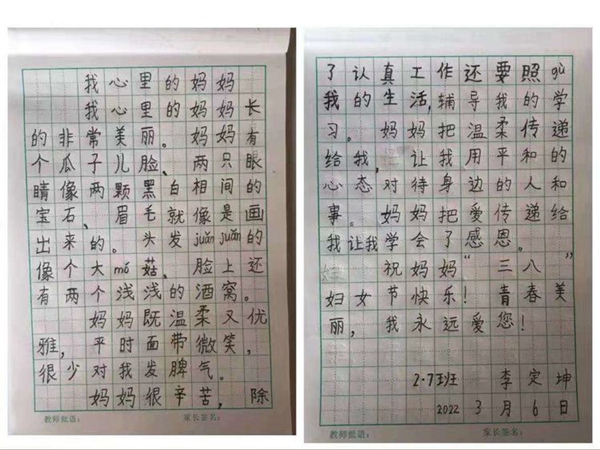 我心里的妈妈
我心里的妈妈长
的非常美丽。妈妈有
个瓜子儿脸、两只眼
睛像两颗黑白相间的
宝石、眉毛就像是画
出来的。头发juǎnjuǎn的
像个大mó菇、脸上还
有两个浅浅的酒窝。
妈妈既温柔又优
雅，平时面带微笑，
很少对我发脾气。
妈妈很辛苦，除
教师批语：
家长签名：
了认真工作还要照gù
我的生活，辅导我的学
习。妈妈把温柔传递
给我，让我用平和的
心态对待身边的人和
事。妈妈把爱传递给
我让我学会了感恩。
祝妈妈“三八”
妇女节快乐！青春美
丽，我永远爱您！
2.7班 李定坤
2022 3月6日
教师批语：
家长签名：